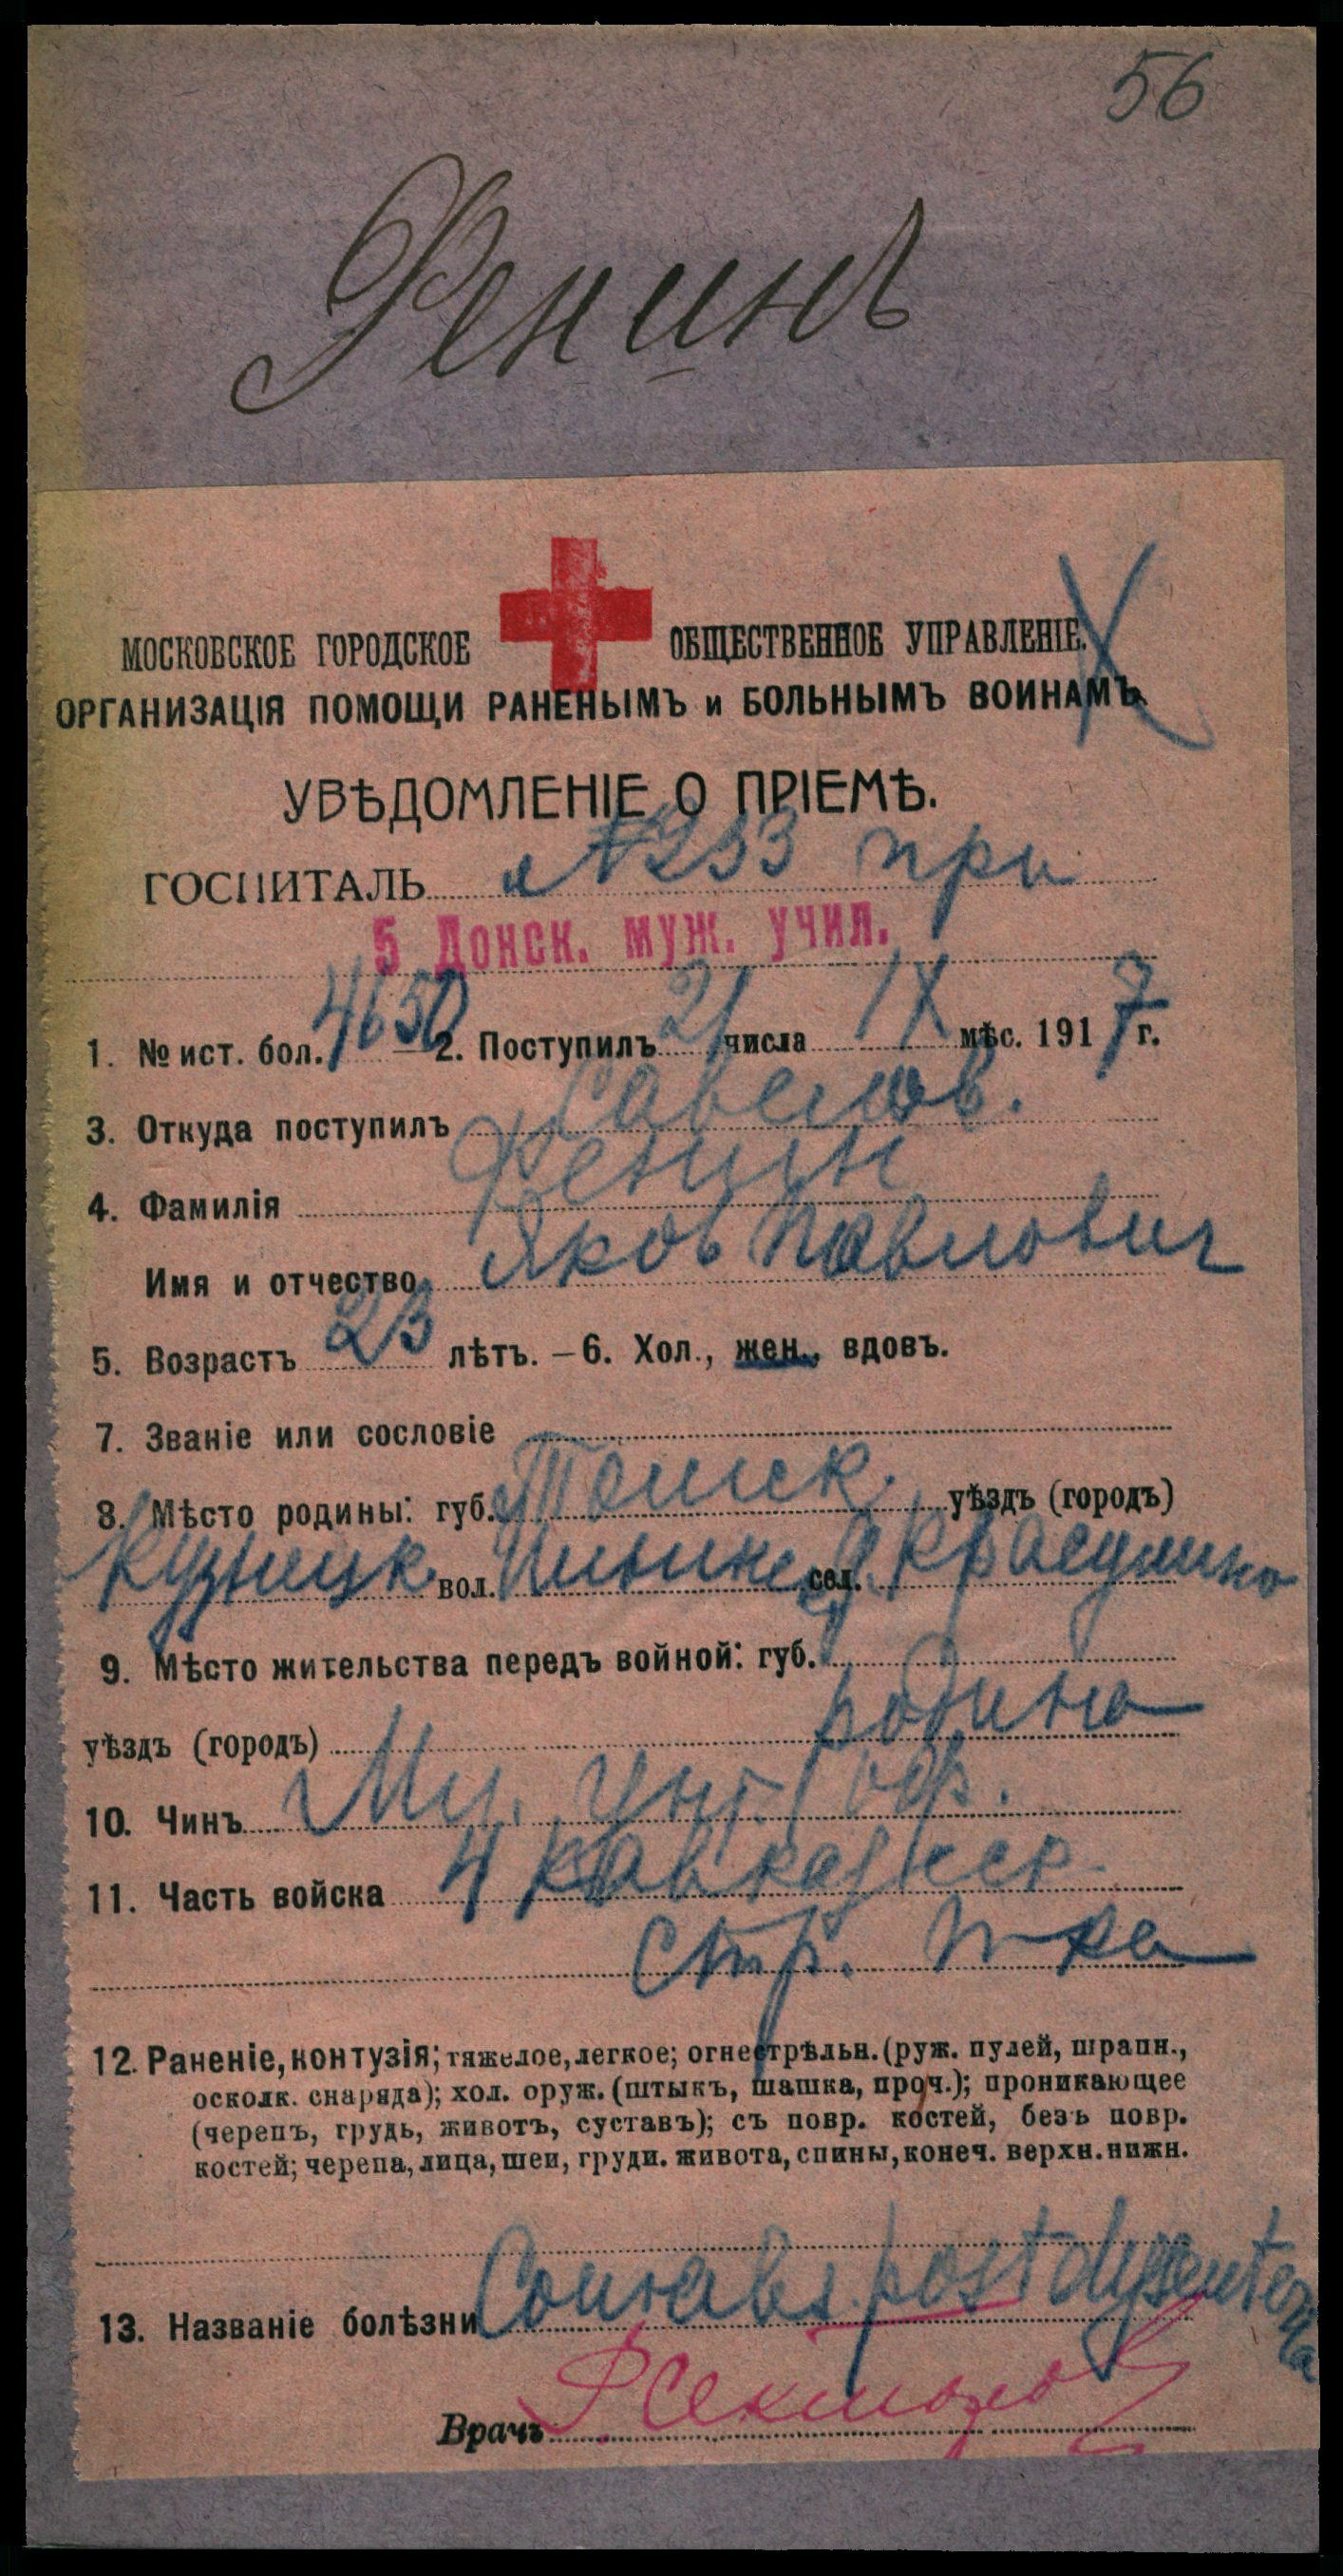 56
Фенинъ
МОСКОВСКОЕ ГОРОДСКОЕ ОБЩЕСТВЕННОЕ УПРАВЛЕНІЕ.
ОРГАНИЗАЦІЯ ПОМОЩИ РАНЕНЫМЪ и БОЛЬНЫМЪ ВОИНАМЪ
УВѢДОМЛЕНІЕ О ПРІЕМѢ.
ГОСПИТАЛЬ № 253 при
5 Донск. муж. учил.
1. № ист. бол. 4650 2. Поступилъ 21 числа IX мѣс. 1917 г.
3. Откуда поступилъ
4. Фамилія Фенин
Имя и отчество Яков Павлович
5. Возрастъ 23 лѣтъ. – 6. Хол., жен., вдовъ.
7. Званіе или сословіе
8. Мѣсто родины: губ. Томск. уѣздъ (городъ)
Кузнецк вол. сел. Красулино
9. Мѣсто жительства передъ войной: губ.
уѣздъ (городъ) родина
10. Чинъ Мл. унт. оф.
11. Часть войска 4 Кавказск
стр. п-ка
12. Раненіе, контузія; тяжелое, легкое; огнестрѣльн. (руж. пулей, шрапн.,
осколк. снаряда); хол. оруж. (штыкъ, шашка, проч.); проникающее
(черепъ, грудь, животъ, суставъ); съ повр. костей, безъ повр.
костей; черепа, лица, шеи, груди. живота, спины, конеч. верхн. нижн.
13. Названіе болѣзни post dysenteria
Врачъ